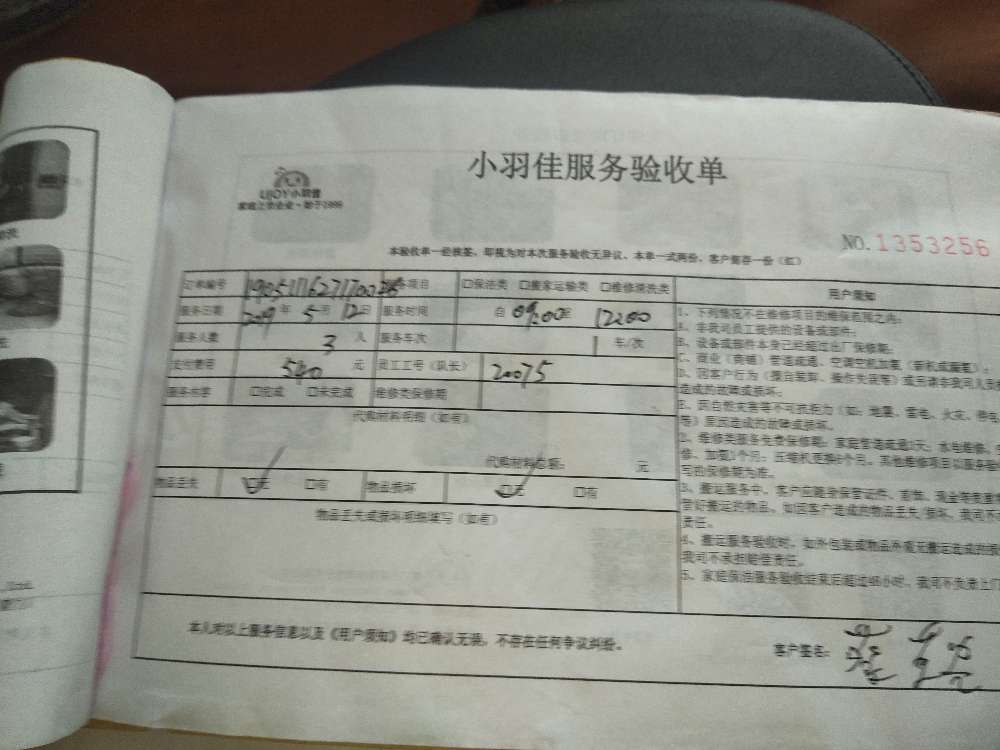 小羽佳服务验收单
LIJOY小羽佳
家庭上农企业·始于1999
NO.1353256
本验收单一经核签，即视为对本次服务验收无异议，本单一式两份，客户留存一份（红）
订单编号 务项目 口保洁类 口搬家运输类 口维修清洗类 用户须知
服务日期 2019 年 5 月 12 日 服务时间 自 09:00 至 12:00
服务人数 3 人 服务车次 车/次
支付费用 540 元 员工工号（队长） 20075
服务水平 口完成 口未完成 维修类保修期
代购材料明细（如有）
代购材料总额： 元
物品丢失 口无 口有 物品损坏 口无 口有
物品丢失或损坏明细填写（如有）
1、下列情况不在维修项目的维保范围之内：
A、非我司员工提供的设备或部件；
B、设备或部件本身已经超过出厂保修期；
C、商业（商铺）管道疏通、空调空机加氨（新机或漏氨）；
造成的故障或损坏；
E、因自然灾害等不可抗拒力（如：地震、雷电、火灾、停电
等）原因造成的故障或损坏。
2、维修类服务免费保修期：家庭管道疏通7天；水电维修、
写的保修期为准。
3、搬运服务中，客户应随身保管证件、首饰、现金等贵重
管好搬运的物品，如因客户造成的物品丢失 损坏，我司不
责任。
4、搬运服务验收时，如外包装或物品外观无搬运造成的损
我司不承担赔偿责任。
5、家庭保洁服务验收结束后超过48小时，我司不负责上门
本人对以上服务信息以及《用户须知》均已确认无误，不存在任何争议纠纷。
客户签名：